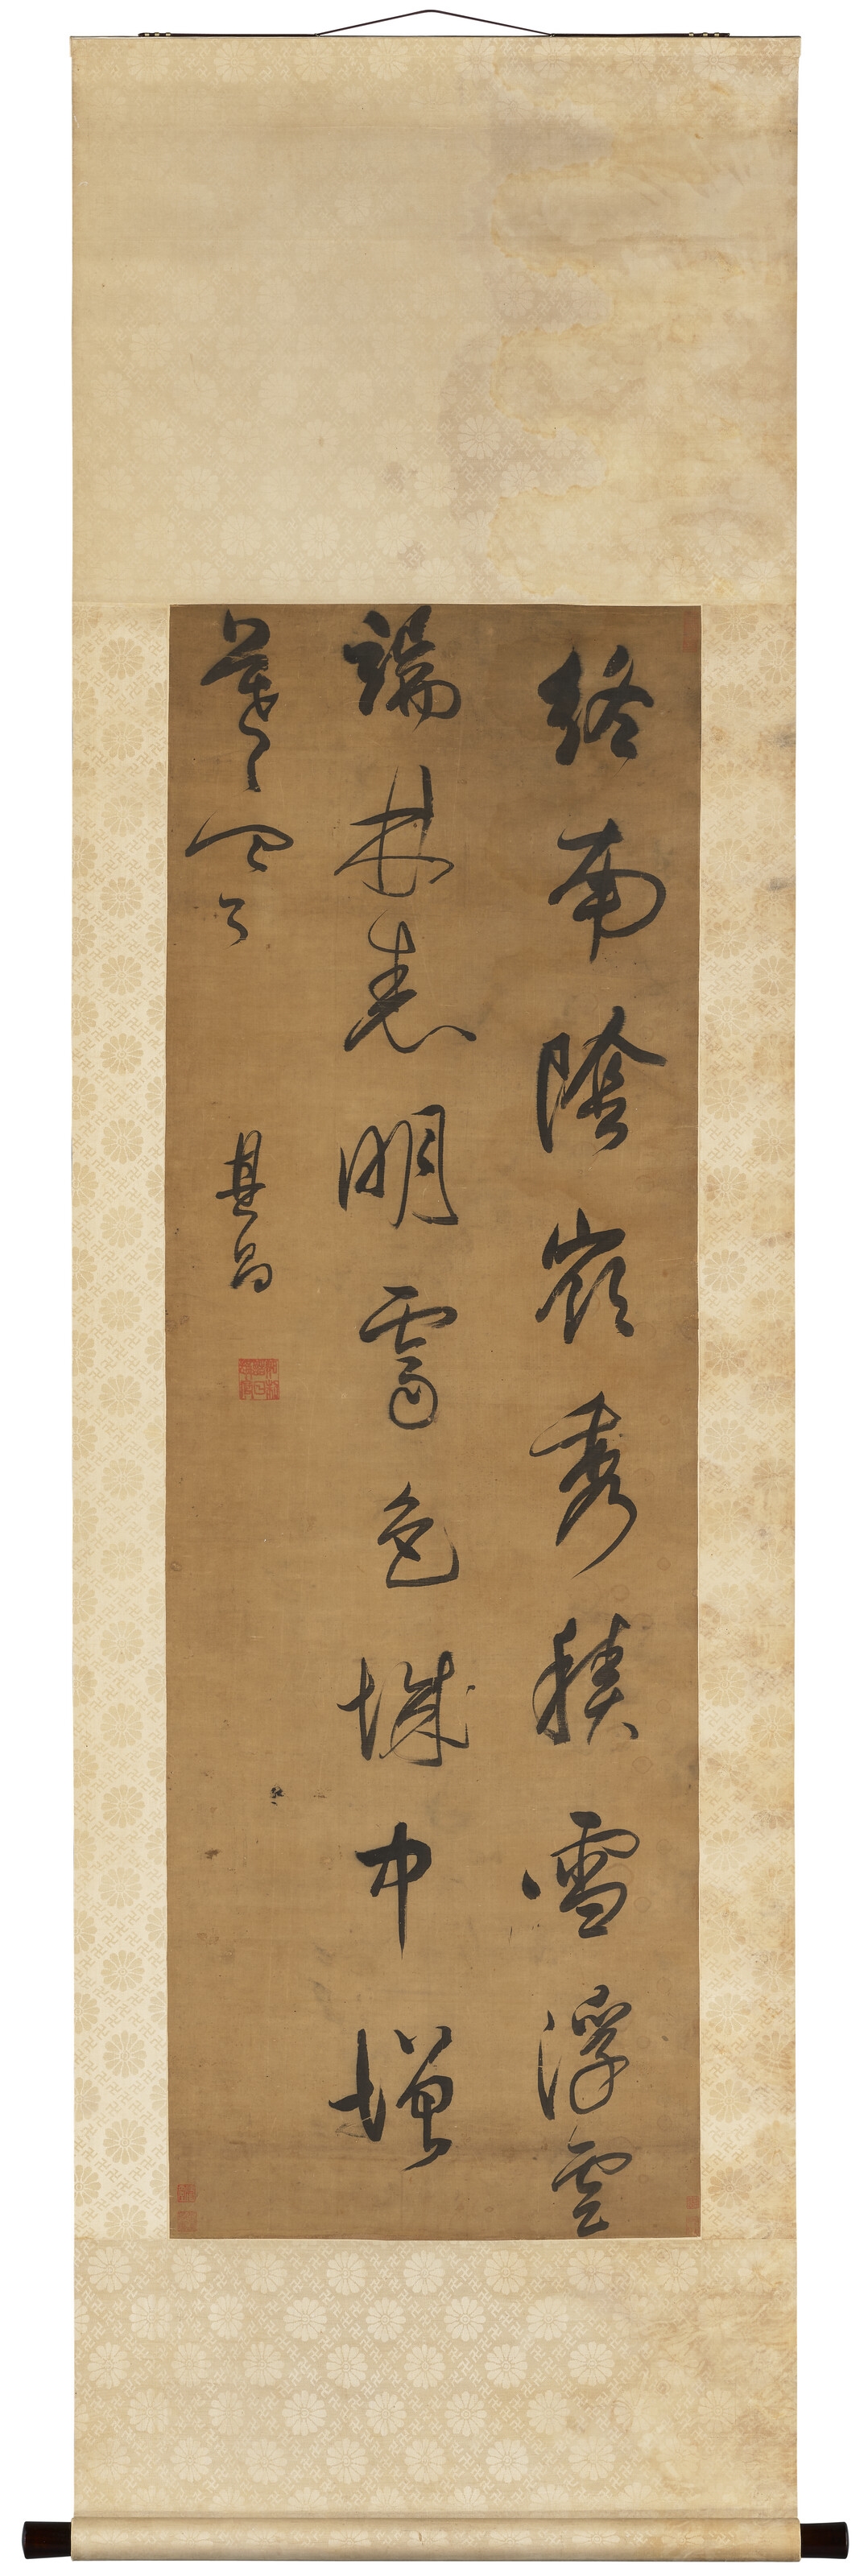 終南陰嶺秀積雪浮雲
端林表明霽色城中增
暮寒
其昌